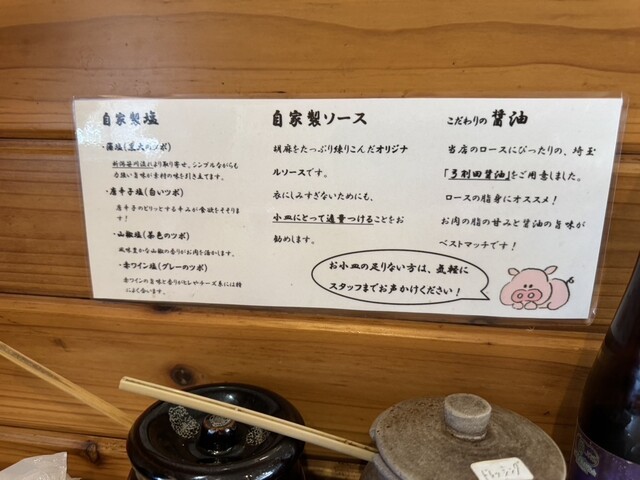 自家製塩
・藻塩(黒大のツボ)
より取り寄せ、シンプルながらも
力強い旨味が素材の味を引き立てます。
・唐辛子塩(白いツボ)
唐辛子のピリッとする辛みが食欲をそそります!
・山椒塩(茶色のツボ)
風味豊かな山椒の香りがお肉を活かします。
・赤ワイン塩(グレーのツボ)
赤ワインの旨味と香りがヒレやチーズ系には特によく合います。
自家製ソース
胡麻をたっぷり練りこんだオリジナ
ルソースです。
衣にしみすぎないためにも、
小皿にとって適量つけることをお
勧めします。
こだわりの醤油
当店のロースにぴったりの、埼玉
「弓削田醤油」をご用意しました。
ロースの脂身にオススメ!
お肉の脂の甘みと醤油の旨味が
ベストマッチです!
お小皿の足りない方は、気軽に
スタッフまでお声かけください!
ドレッシング